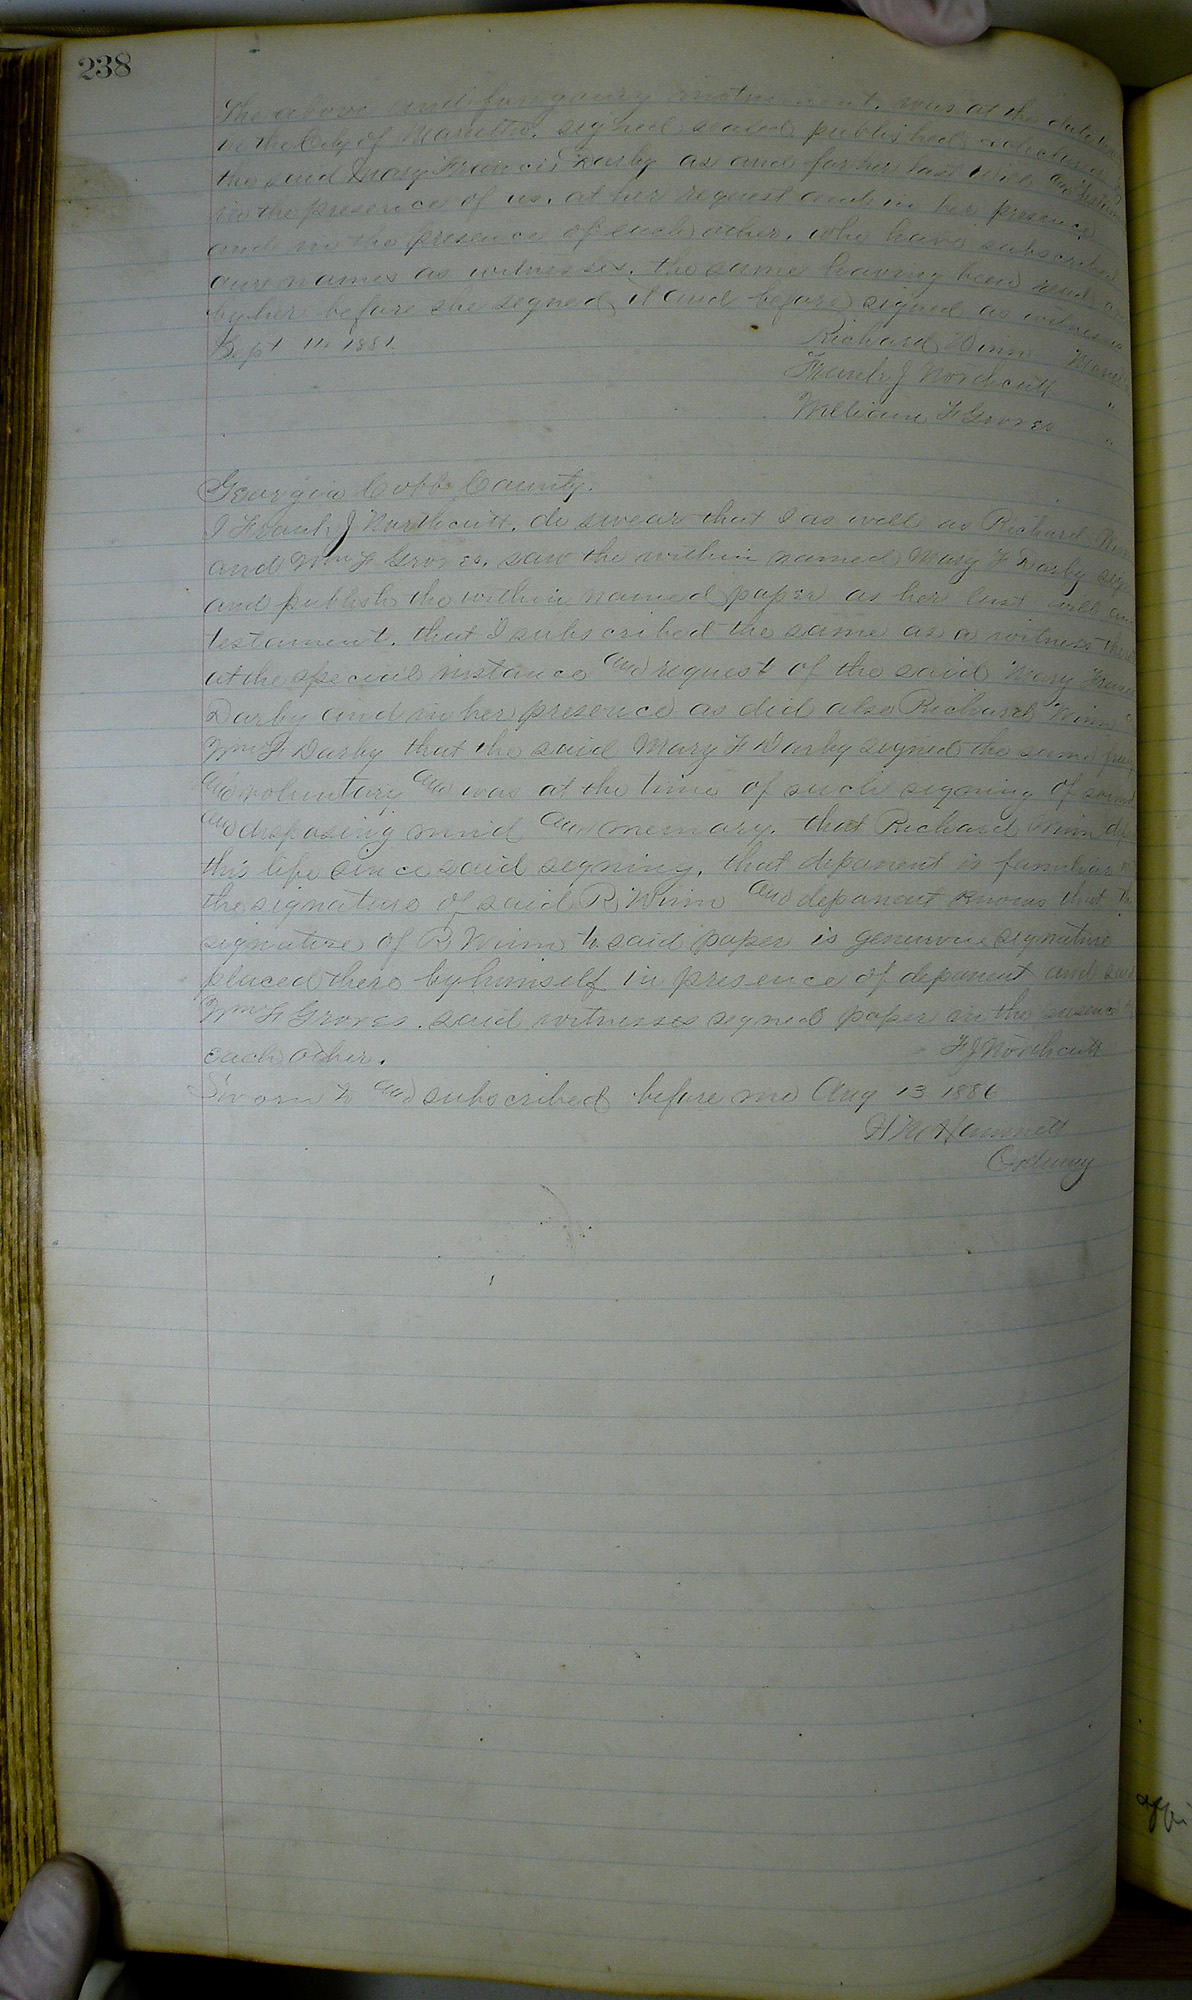 238
The above and foregoing instrument, was at the date
in the City of Marietta, signed sealed published
the said Mary Francis Darby as and for her last will and
in the presence of us, at her request and in her presence
and in the presence of each other, who have subscribed
our names as witnesses, the same having been read
by her before she signed it and before signed as witnesses
Sept 14 1881. Richard Winn
Frank J Northcutt "
William F Groves "
Georgia Cobb County.
I Frank J Northcutt, do swear that I as well as Richard Winn
and Wm F Groves, saw the within named Mary F Darby sign
and publish the within named paper as her last will
testament, that I subscribed the same as a witness
at the special instance and request of the said Mary
Darby and in her presence as did also Richard Winn
Wm F Darby that the said Mary F Darby signed the same
and voluntary and was at the time of such signing of sound
and disposing mind and memory. that Richard Winn
this life since said signing, that deponent is familiar
the signature of said R Winn and deponent knows that
signature of R Winn to said paper is genuine signature
placed there by himself in presence of deponent and said
Wm F Groves. said witnesses signed paper in the presence
each other. F J Northcutt
Sworn to and subscribed before me Aug 13 1886
H M Hammett
Ordinary
affi